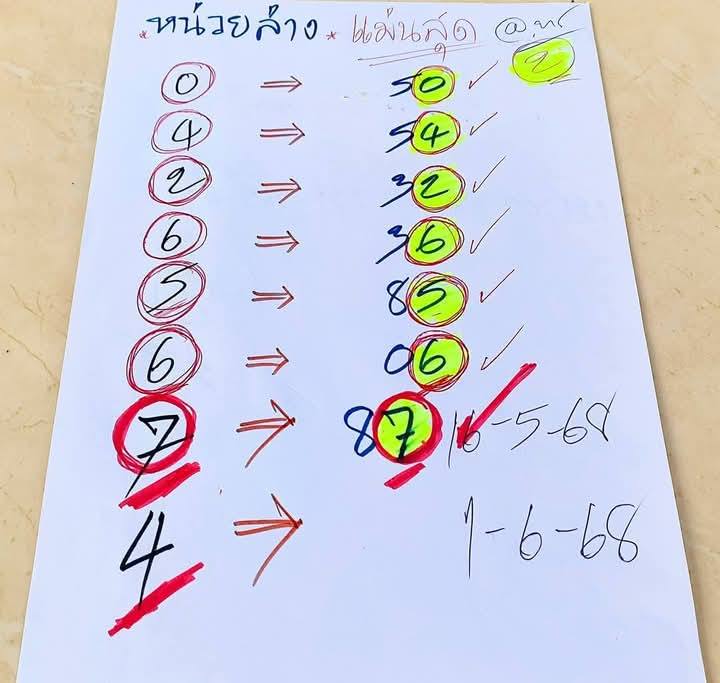 *หน่วยล่าง* แม่นสุด
0 ⇒ 50 ✓
4 ⇒ 54 ✓
2 ⇒ 32 ✓
6 ⇒ 36 ✓
5 ⇒ 85 ✓
6 ⇒ 06 ✓
7 ⇒ 87 ✓ 16-5-68
4 ⇒ 1-6-68